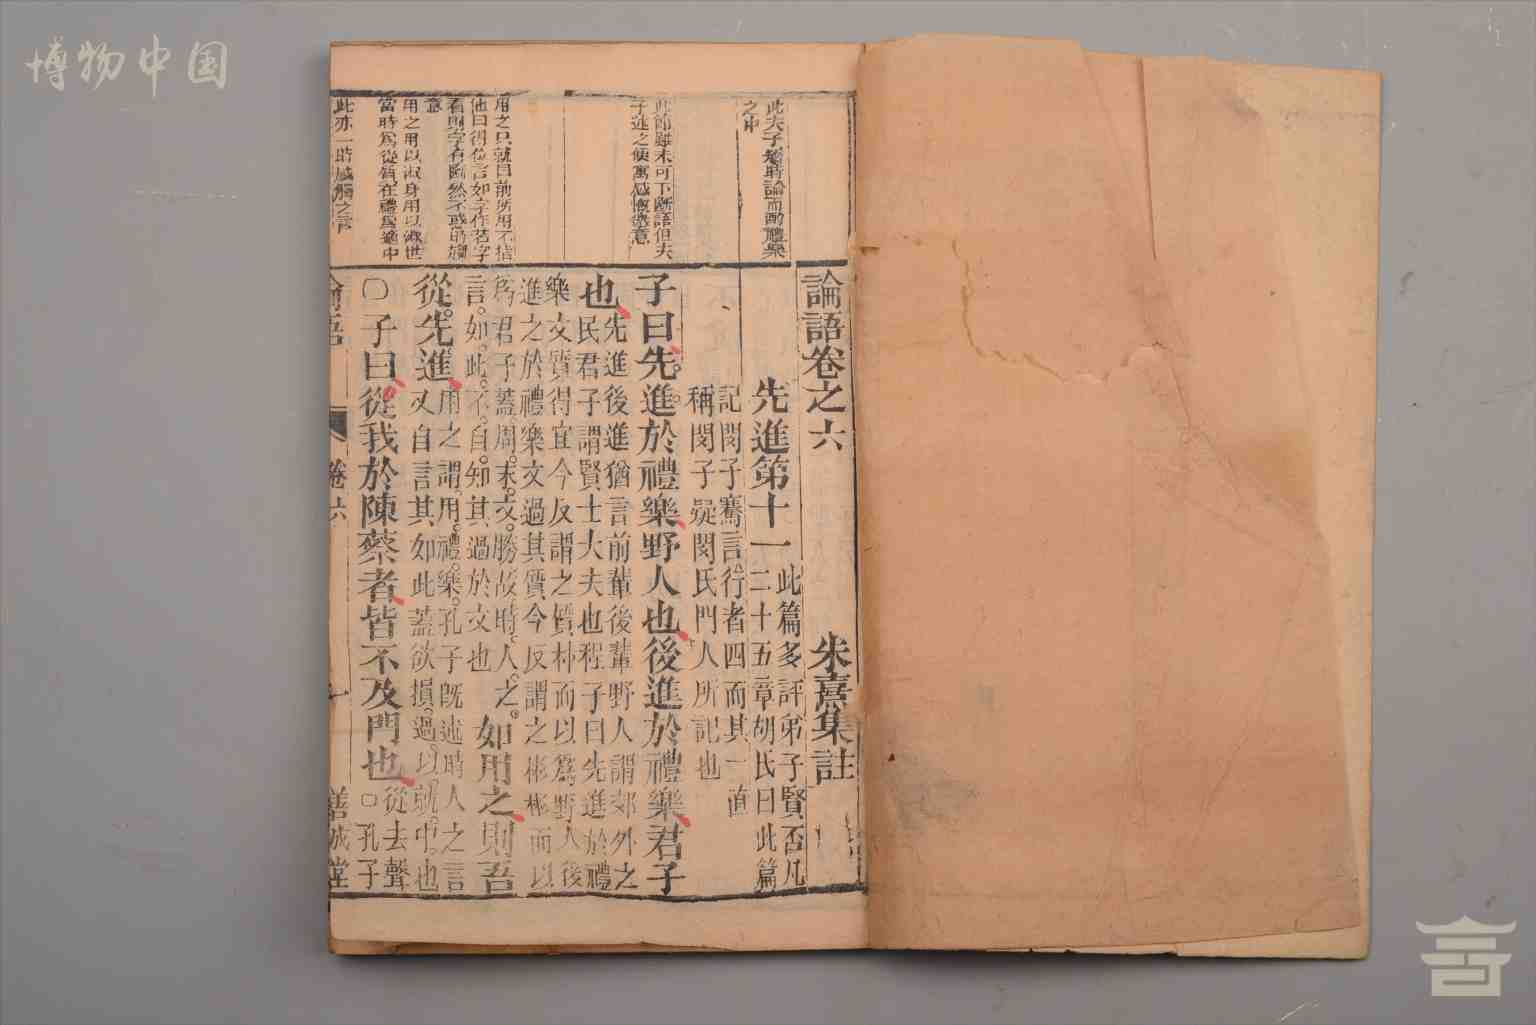 博物中国
此夫子矯時論而酌禮樂
之中
此節雖未可下斷語但夫
子述之便寓感慨微意
用之只就目前所用不指
他日得位言如字作若字
看則字有斷然不惑
意
用之用以淑身用以淑世
當時爲從質在禮爲適中
此亦一時感觸之言
論語卷之六
朱熹集註
先進第十一
此篇多評弟子賢否凡
二十五章胡氏曰此篇
記閔子騫言行者四而其一直
稱閔子疑閔氏門人所記也
子曰先進於禮樂野人也後進於禮樂君子
也
先進後進猶言前輩後輩野人謂郊外之
民君子謂賢士大夫也程子曰先進於禮
樂文質得宜今反謂之質朴而以爲野人後
進之於禮樂文過其質今反謂之彬彬而以
爲君子蓋周末文勝故時人之
言如此不自知其過於文也
如用之則吾
從先進
用之謂用禮樂孔子既述時人之言
又自言其如此蓋欲損過以就中也
○子曰從我於陳蔡者皆不及門也
從去聲
○孔子
論語
卷六
善成堂